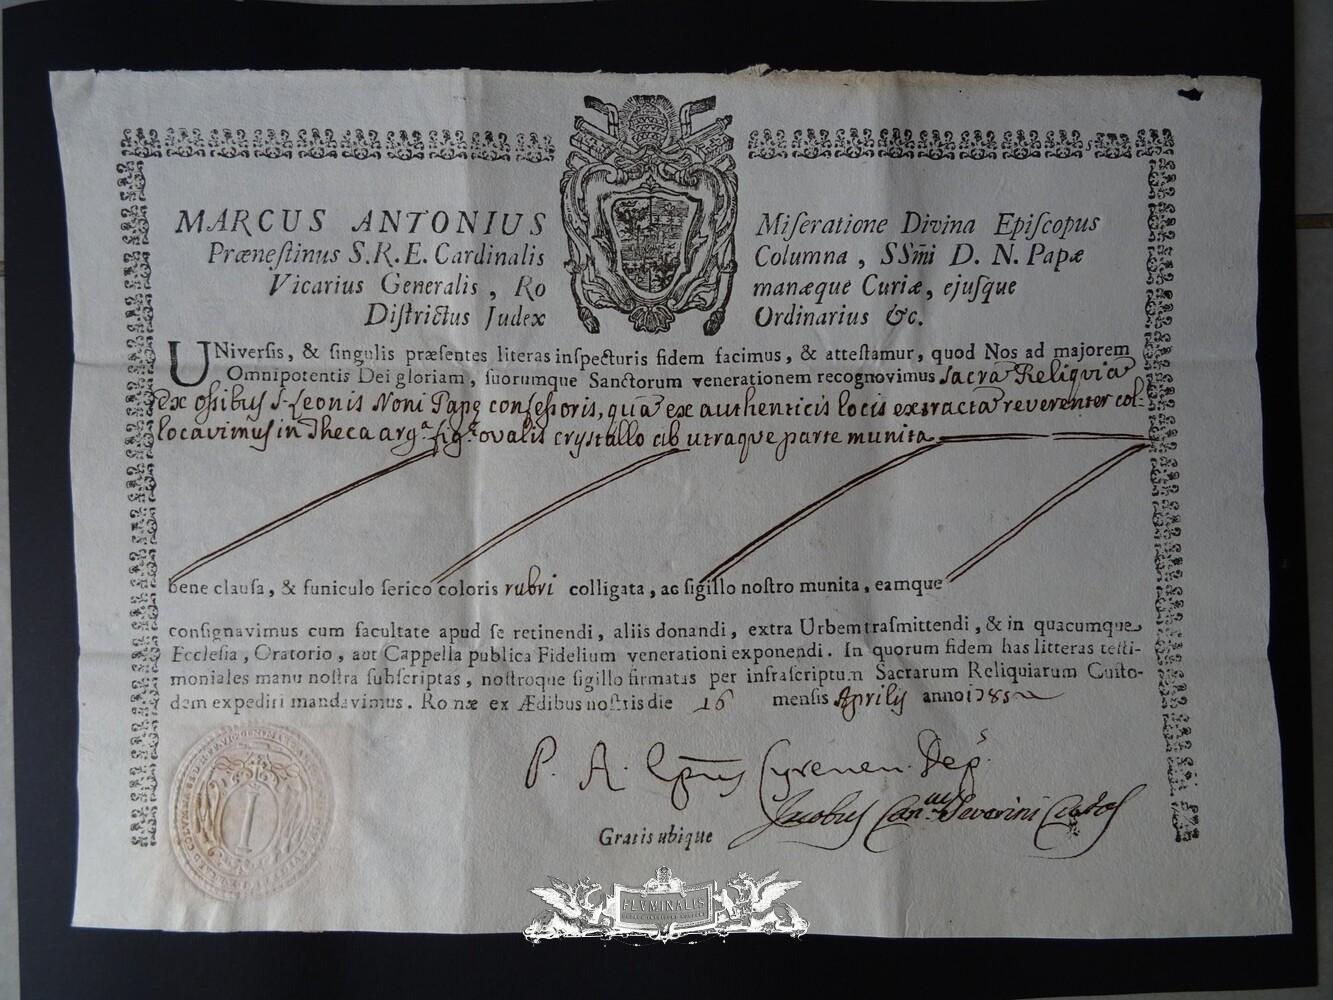 MARCUS ANTONIUS Miſeratione Divina Epiſcopus
Præneſtinus S.R.E. Cardinalis Columna, SSm̃i D. N. Papæ
Vicarius Generalis, Ro manæque Curiæ, ejuſque
Diſtrictus Judex Ordinarius &c.
UNiverſis, & ſingulis præſentes literas inſpecturis fidem facimus, & atteſtamur, quod Nos ad majorem
Omnipotentis Dei gloriam, ſuorumque Sanctorum venerationem recognovimus ſacrã Reliquiã
ex oſſibus S. Leonis Noni Papę confeſſoris, quã ex authenticis locis extractã reverenter col-
locavimus in Theca arg.ª fig.ª ovalis crystallo ab utraque parte munita
bene clauſa, & funiculo ſerico coloris rubri colligata, ac ſigillo noſtro munita, eamque
conſignavimus cum facultate apud ſe retinendi, aliis donandi, extra Urbem traſmittendi, & in quacumque
Eccleſia, Oratorio, aut Cappella publica Fidelium venerationi exponendi. In quorum fidem has litteras teſti-
moniales manu noſtra ſubſcriptas, noſtroque ſigillo firmatas per infraſcriptum Sacrarum Reliquiarum Cuſto-
dem expediri mandavimus. Romæ ex Ædibus noſtris die 16 menſis Aprilis anno
P. A. Ep̃us Cyrenen. Dep.s
Jacobus Can.cus Severini Custos
Gratis ubique
FLUMINALIS